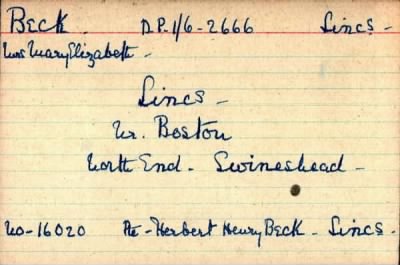 Beck. D.P. 1/6-2666 Lincs -
Mrs Mary Elizabeth -
Lincs -
Nr. Boston
North End - Swineshead -
No-16020 Pte - Herbert Henry Beck - Lincs -